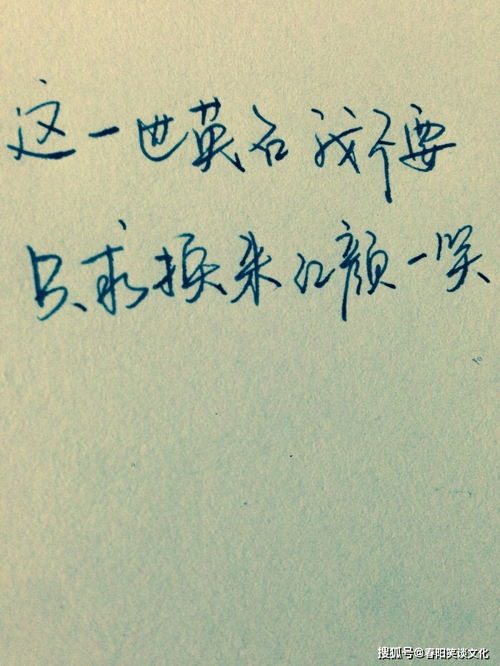 这一世英名我不要
只求换来红颜一笑
搜狐号@春阳笑谈文化